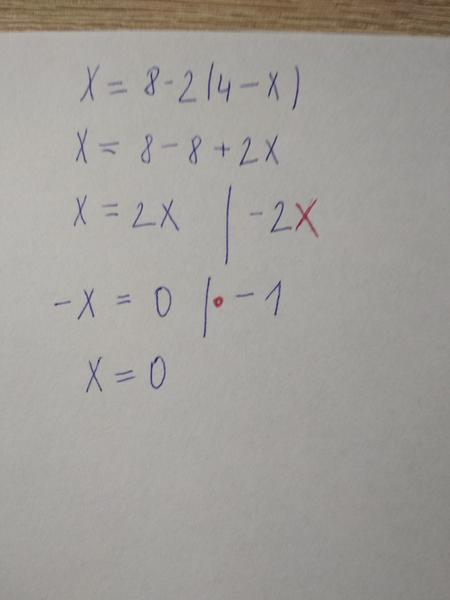 x = 8 - 2(4 - x)
x = 8 - 8 + 2x
x = 2x | -2x
-x = 0 | • - 1
x = 0